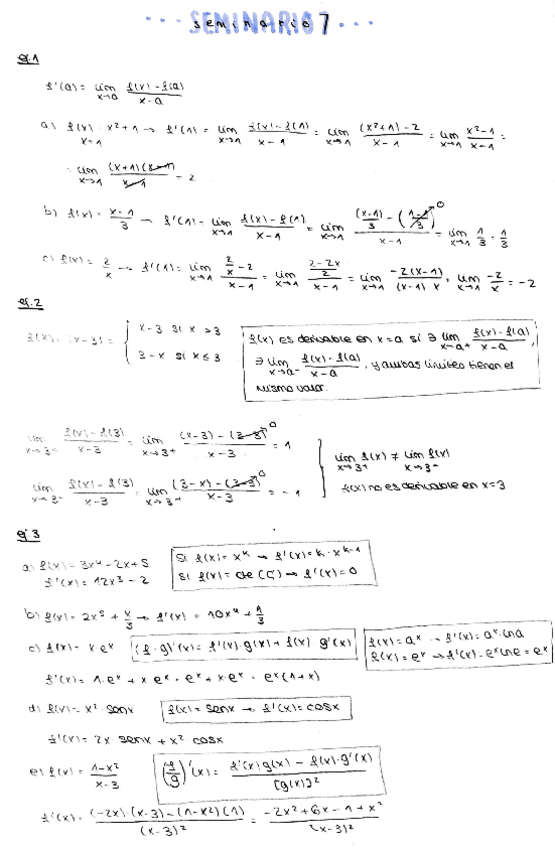 SEMINARIO 7
seminario
ej.1
f'(a) = lim x→a f(x) - f(a) / x - a
a) f(x) = x²+1 → f'(1) = lim x→1 f(x) - f(1) / x - 1 = lim x→1 (x²+1) - 2 / x - 1 = lim x→1 x² - 1 / x - 1 =
x=1
= lim x→1 (x+1)(x-1) / x-1 = 2
b) f(x) = x-1 / 3 → f'(1) = lim x→1 f(x) - f(1) / x - 1 = lim x→1 (x-1)/3 - (1-1/3) 0 / x - 1 = lim x→1 1/3 = 1/3
c) f(x) = 2/x → f'(1) = lim x→1 2/x - 2 / x - 1 = lim x→1 2-2x / 2 / x - 1 = lim x→1 -2(x-1) / (x-1) x = lim x→1 -2/x = -2
ej.2
f(x) = |x-3| = { x-3 si x > 3
3-x si x ≤ 3
f(x) es derivable en x=a si ∃ lim x→a+ f(x) - f(a) / x - a,
∃ lim x→a- f(x) - f(a) / x - a, y ambos límites tienen el
mismo valor.
lim x→3+ f(x) - f(3) / x - 3 = lim x→3+ (x-3) - (3-3) 0 / x - 3 = 1
lim x→3- f(x) - f(3) / x - 3 = lim x→3- (3-x) - (3-3) 0 / x - 3 = -1
lim x→3+ f(x) ≠ lim x→3- f(x)
f(x) no es derivable en x=3
ej.3
a) f(x) = 3x⁴ - 2x + 5
f'(x) = 12x³ - 2
Si f(x) = xᵏ → f'(x) = k · xᵏ⁻¹
Si f(x) = cte (C) → f'(x) = 0
b) f(x) = 2x⁵ + x/3 → f'(x) = 10x⁴ + 1/3
c) f(x) = x eˣ
(f · g)'(x) = f'(x) · g(x) + f(x) g'(x)
f(x) = aˣ → f'(x) = aˣ · lna
f(x) = eˣ → f'(x) = eˣ lne = eˣ
f'(x) = 1 · eˣ + x eˣ = eˣ + x eˣ = eˣ (1+x)
d) f(x) = x² · senx
f(x) = senx → f'(x) = cosx
f'(x) = 2x senx + x² cosx
e) f(x) = 1-x² / x-3
(f/g)'(x) = f'(x) g(x) - f(x) · g'(x) / [g(x)]²
f'(x) = (-2x) · (x-3) - (1-x²)(1) / (x-3)² = -2x² + 6x - 1 + x² / (x-3)²